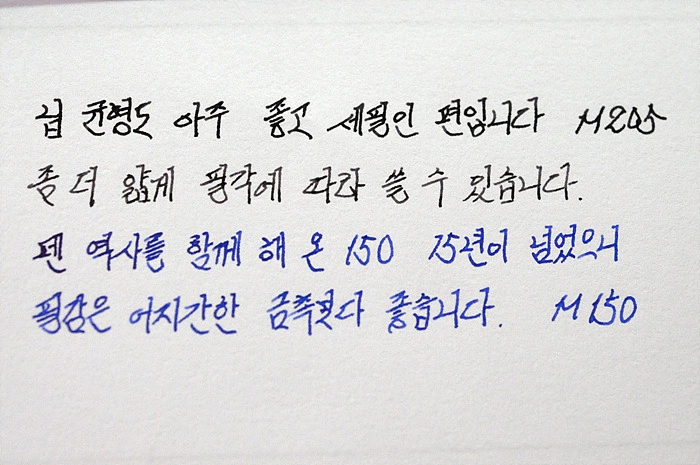 닙 균형도 아주 좋고 세필인 편입니다 M205
좀 더 얇게 필각에 따라 쓸 수 있습니다.
펜 역사를 함께 해 온 150 75년이 넘었으니
필감은 어지간한 금촉보다 좋습니다. M150